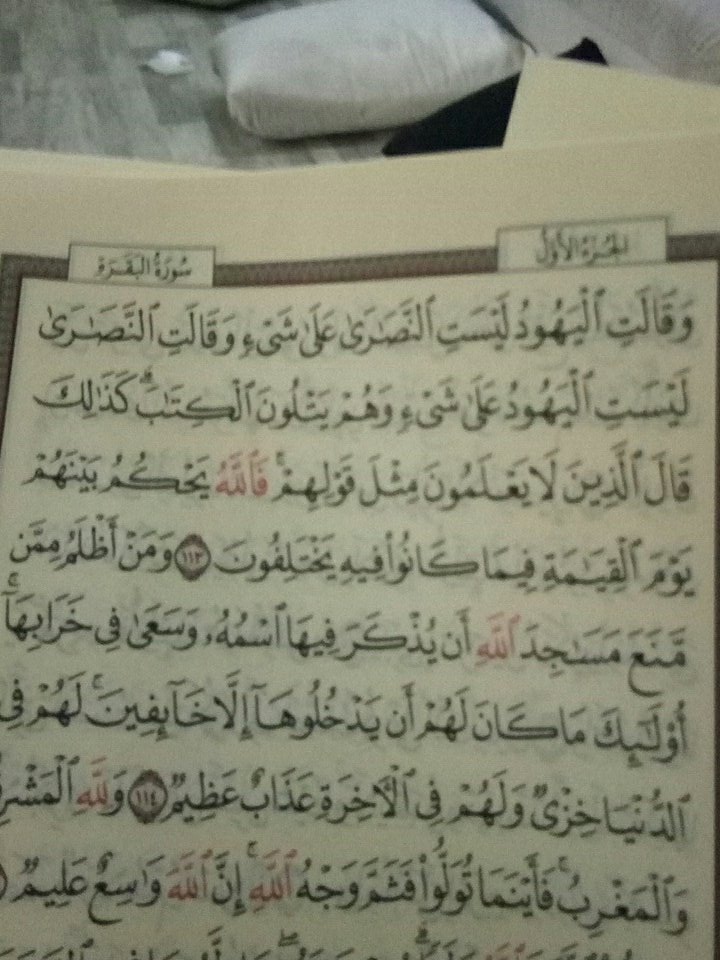 الجزء الأول
سورة البقرة
وَقَالَتِ ٱلْيَهُودُ لَيْسَتِ ٱلنَّصَٰرَىٰ عَلَىٰ شَىْءٍ وَقَالَتِ ٱلنَّصَٰرَىٰ
لَيْسَتِ ٱلْيَهُودُ عَلَىٰ شَىْءٍ وَهُمْ يَتْلُونَ ٱلْكِتَٰبَ ۗ كَذَٰلِكَ
قَالَ ٱلَّذِينَ لَا يَعْلَمُونَ مِثْلَ قَوْلِهِمْ ۚ فَٱللَّهُ يَحْكُمُ بَيْنَهُمْ
يَوْمَ ٱلْقِيَٰمَةِ فِيمَا كَانُوا۟ فِيهِ يَخْتَلِفُونَ ١١٣ وَمَنْ أَظْلَمُ مِمَّن
مَّنَعَ مَسَٰجِدَ ٱللَّهِ أَن يُذْكَرَ فِيهَا ٱسْمُهُۥ وَسَعَىٰ فِى خَرَابِهَآ ۚ
أُو۟لَٰٓئِكَ مَا كَانَ لَهُمْ أَن يَدْخُلُوهَآ إِلَّا خَآئِفِينَ ۚ لَهُمْ فِى
ٱلدُّنْيَا خِزْىٌ وَلَهُمْ فِى ٱلْـَٔاخِرَةِ عَذَابٌ عَظِيمٌ ١١٤ وَلِلَّهِ ٱلْمَشْرِقُ
وَٱلْمَغْرِبُ ۚ فَأَيْنَمَا تُوَلُّوا۟ فَثَمَّ وَجْهُ ٱللَّهِ ۚ إِنَّ ٱللَّهَ وَٰسِعٌ عَلِيمٌ